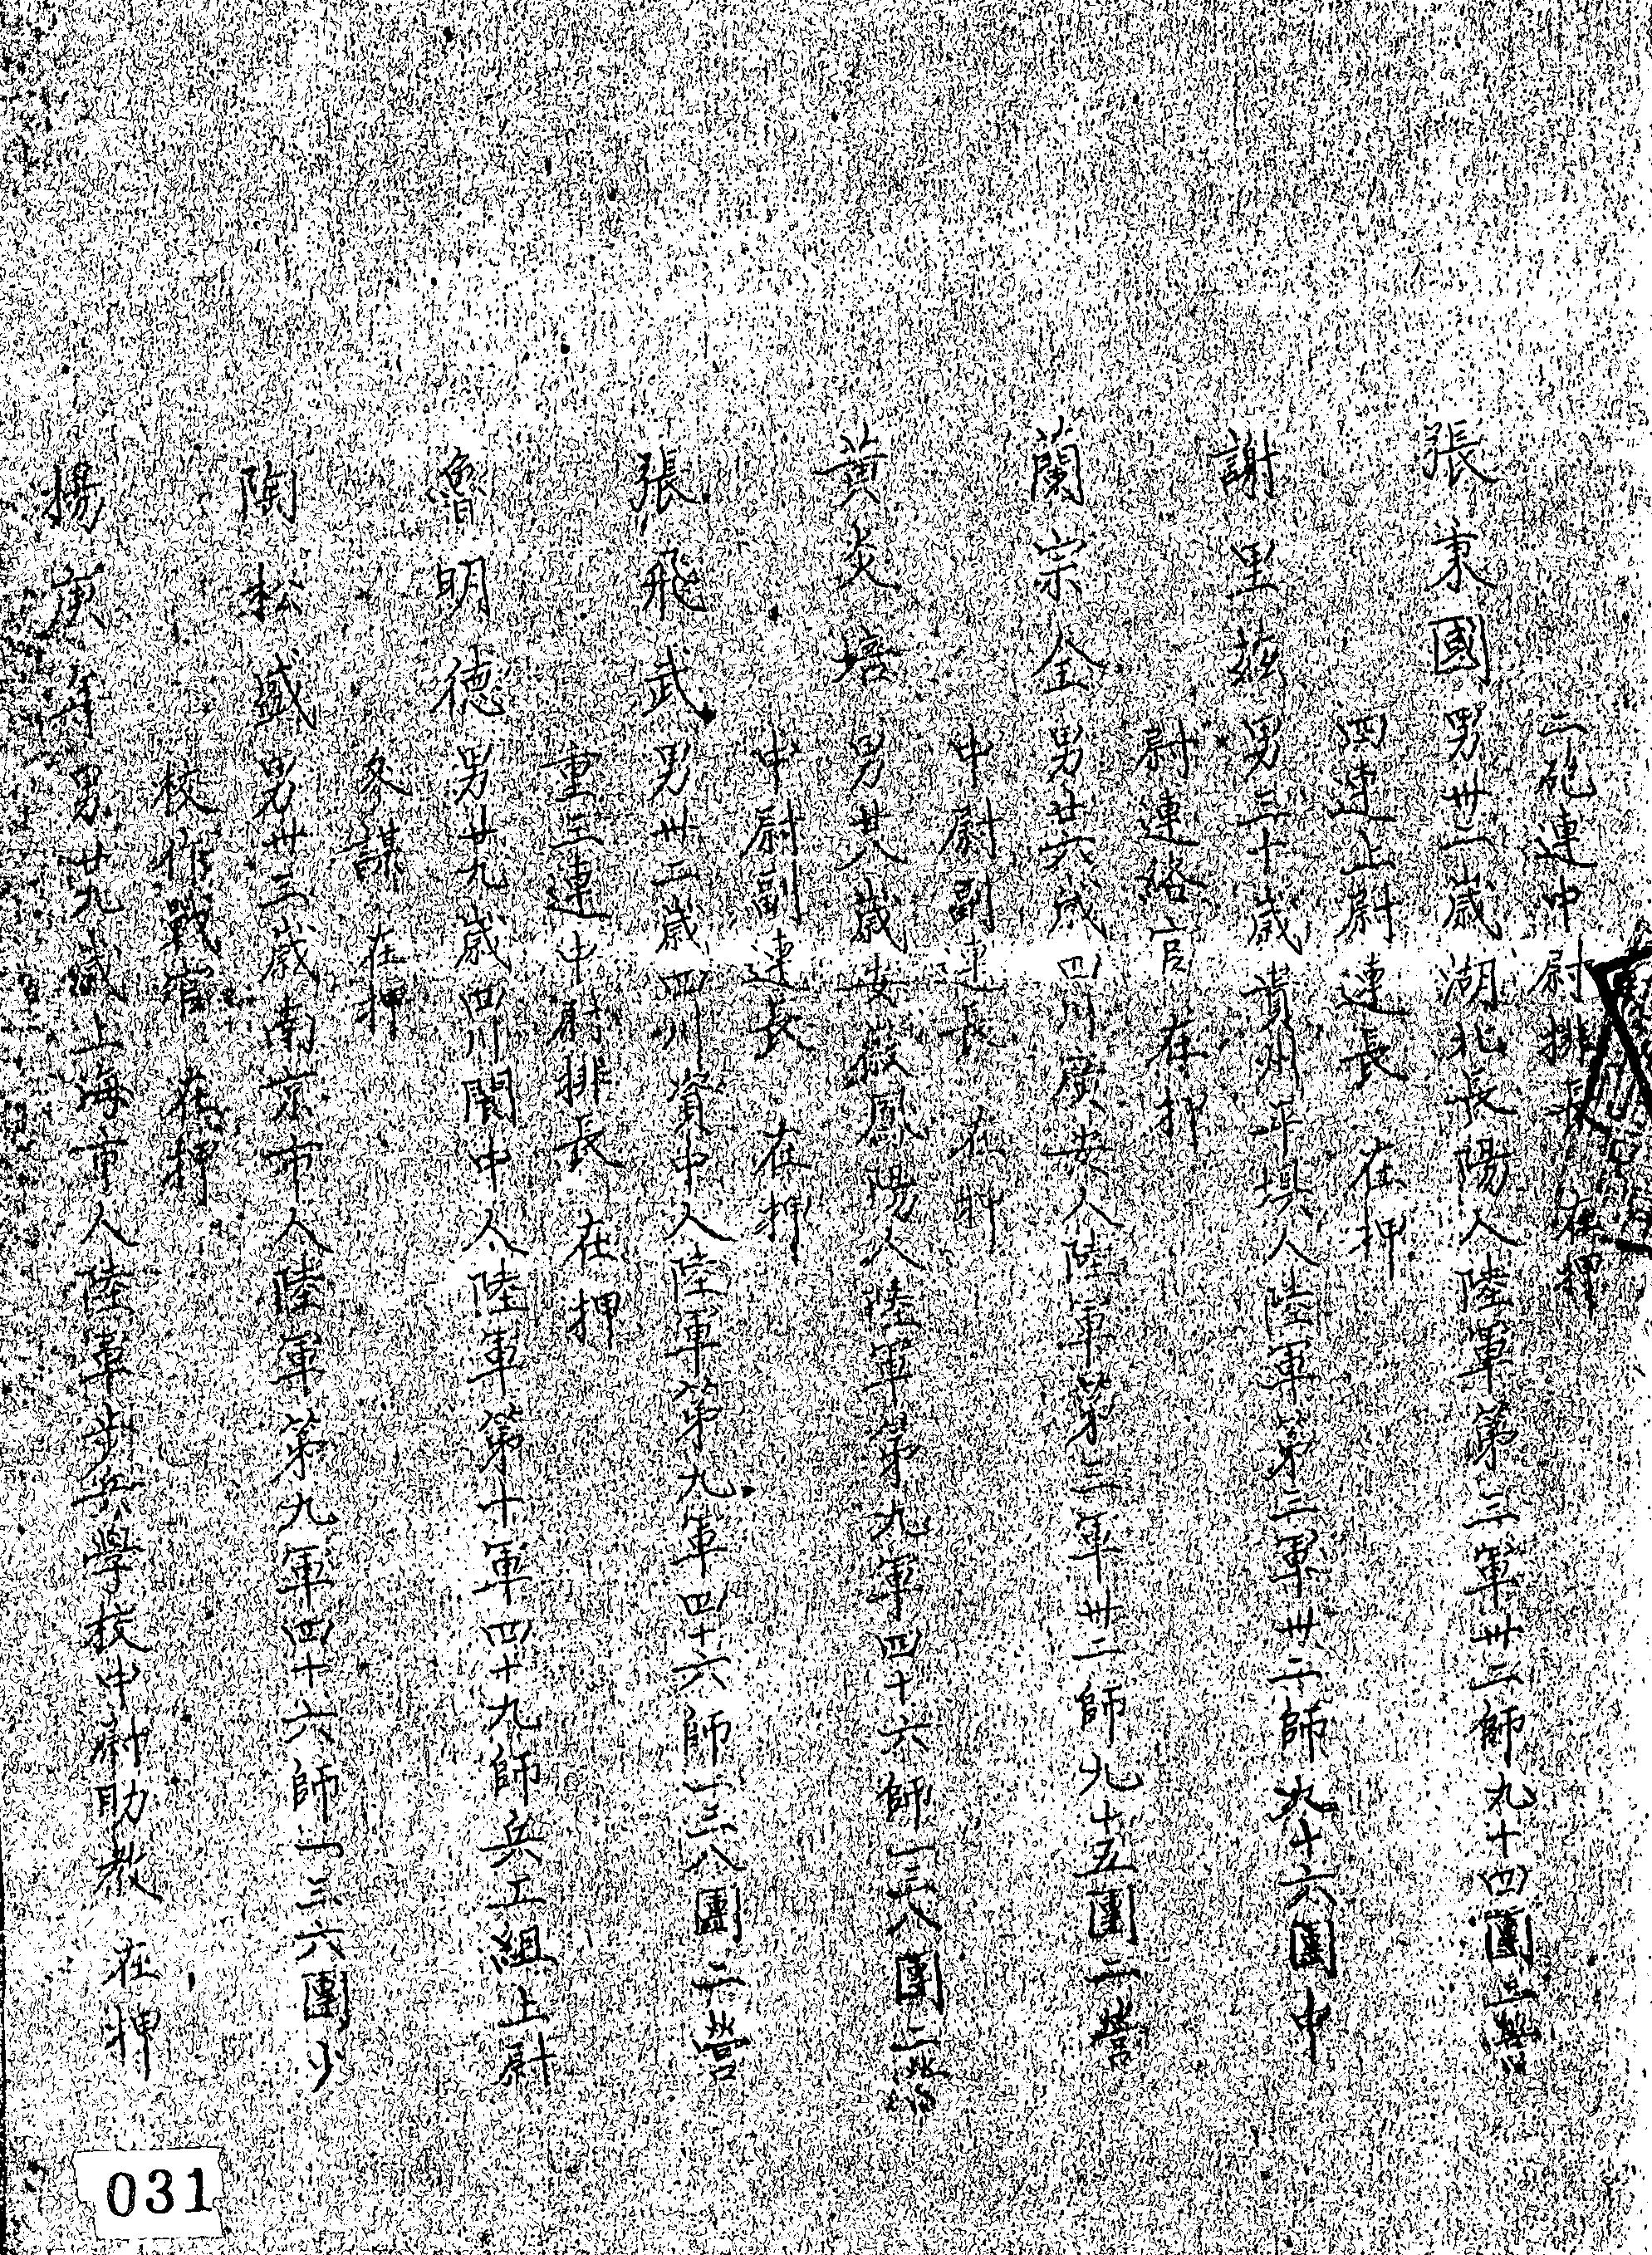 二砲連中尉排長 在押
張秉國 男卅二歲湖北長陽人陸軍第三軍卅二師九十四團三營
四連上尉連長 在押
謝里 男三十歲貴州平壩人陸軍第三軍卅二師九十六團中
尉連絡官 在押
蘭宗全 男廿六歲四川廣安人陸軍第三軍卅二師九十五團二營
中尉副連長 在押
黃炎培 男廿八歲安徽鳳陽人陸軍第九軍四十六師一三八團二營
中尉副連長 在押
張飛武 男卅二歲四川資中人陸軍第九軍四十六師一三八團二營
重三連中尉排長 在押
魯明德 男廿九歲四川閬中人陸軍第十軍四十九師兵工組上尉
參謀 在押
陶松盛 男卅三歲南京市人陸軍第九軍四十六師一三六團少
校作戰官 在押
揚庚年 男廿九歲上海市人陸軍步兵學校中尉助教 在押
031